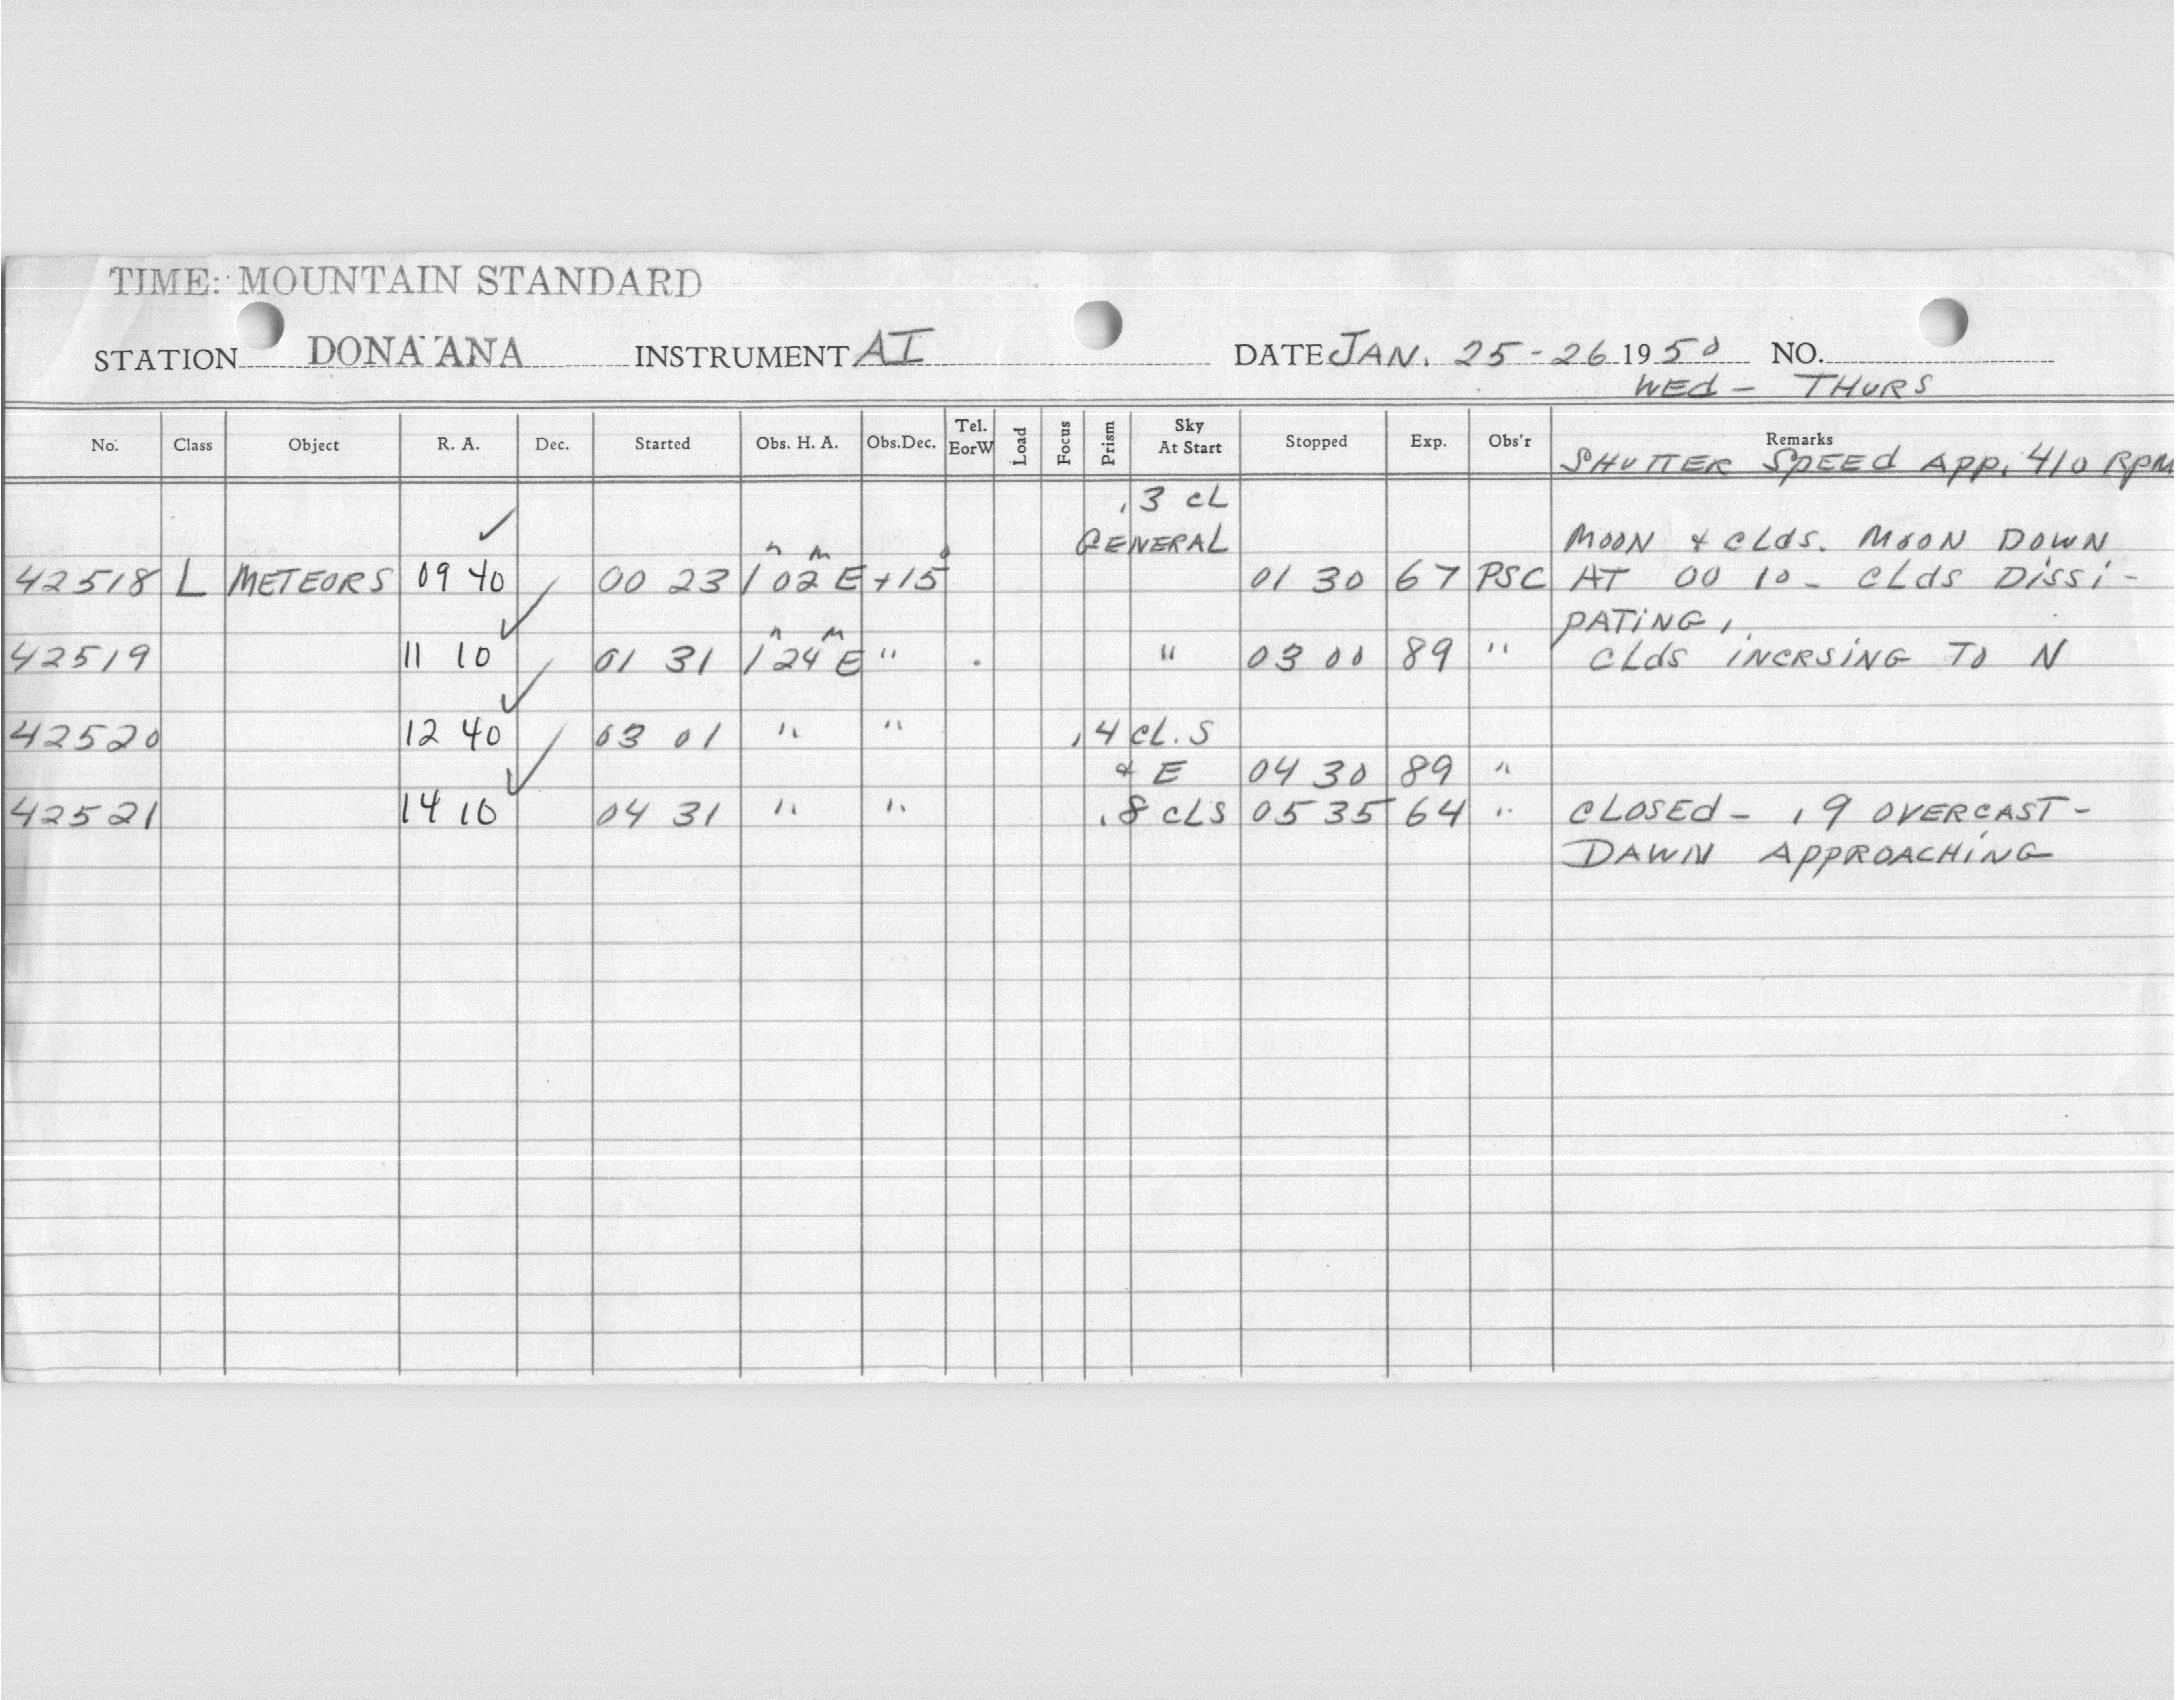 TIME: MOUNTAIN STANDARD
STATION DONA ANA INSTRUMENT AI DATE JAN. 25-26 1950 NO.
WED - THURS
No. Class Object R. A. Dec. Started Obs. H. A. Obs.Dec. Tel. EorW Load Focus Prism Sky At Start Stopped Exp. Obs'r Remarks
SHUTTER SPEED APP. 410 RPM
.3 CL
✓ GENERAL MOON & CLDS. MOON DOWN
42518 L METEORS 09 40 00 23 1h 02m E +15° 01 30 67 PSC AT 00 10 - CLDS DISSI-
✓ PATING,
42519 11 10 01 31 1h 24m E " " 03 00 89 " CLDS INCRSING TO N
✓
42520 12 40 03 01 " " .4 CL. S
✓ & E 04 30 89 "
42521 14 10 04 31 " " .8 CLS 05 35 64 " CLOSED - .9 OVERCAST -
DAWN APPROACHING